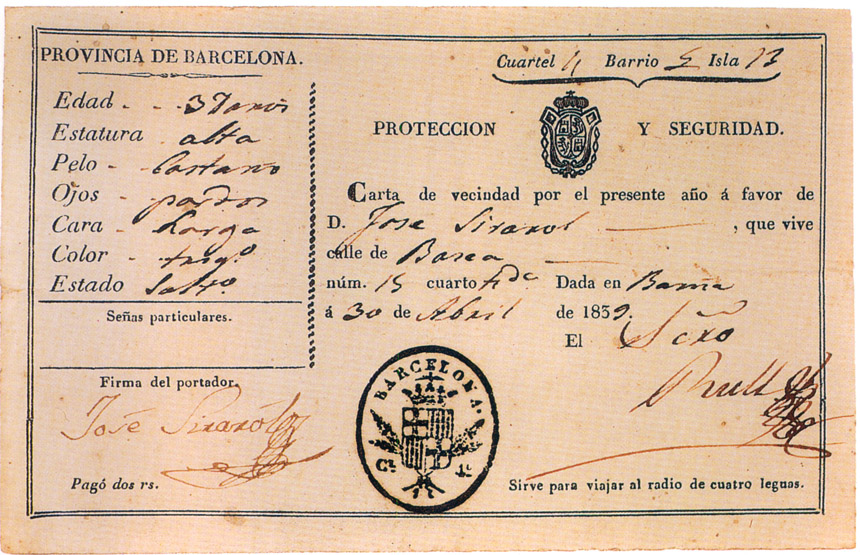 PROVINCIA DE BARCELONA.
Edad - - - 37 años
Estatura alta
Pelo - Castaño
Ojos - pardos
Cara - Larga
Color - trigo
Estado Solto
Señas particulares.
Firma del portador.
José Sirarol
Pagó dos rs.
Cuartel 4 Barrio 5 Isla 13
PROTECCION Y SEGURIDAD.
Carta de vecindad por el presente año á favor de
D. Jose Sirarol , que vive
calle de Basea
núm. 15 cuarto Dada en Barna
á 30 de Abril de 1839.
El Scrio
Rull
BARCELONA.
Cl. 1º
Sirve para viajar al radio de cuatro leguas.